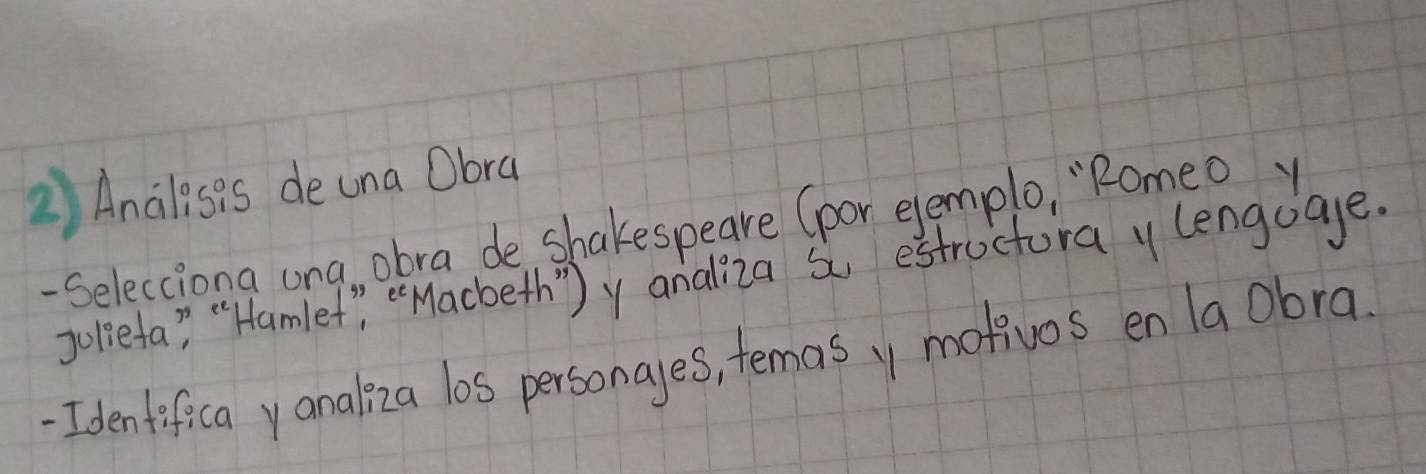 2) Análisis de una Obra
-Selecciona una obra de Shakespeare (por ejemplo, "Romeo y
Julieta", "Hamlet", "Macbeth") y analiza su estructura y lenguaje.
-Identifica y analiza los personajes, temas y motivos en la Obra.